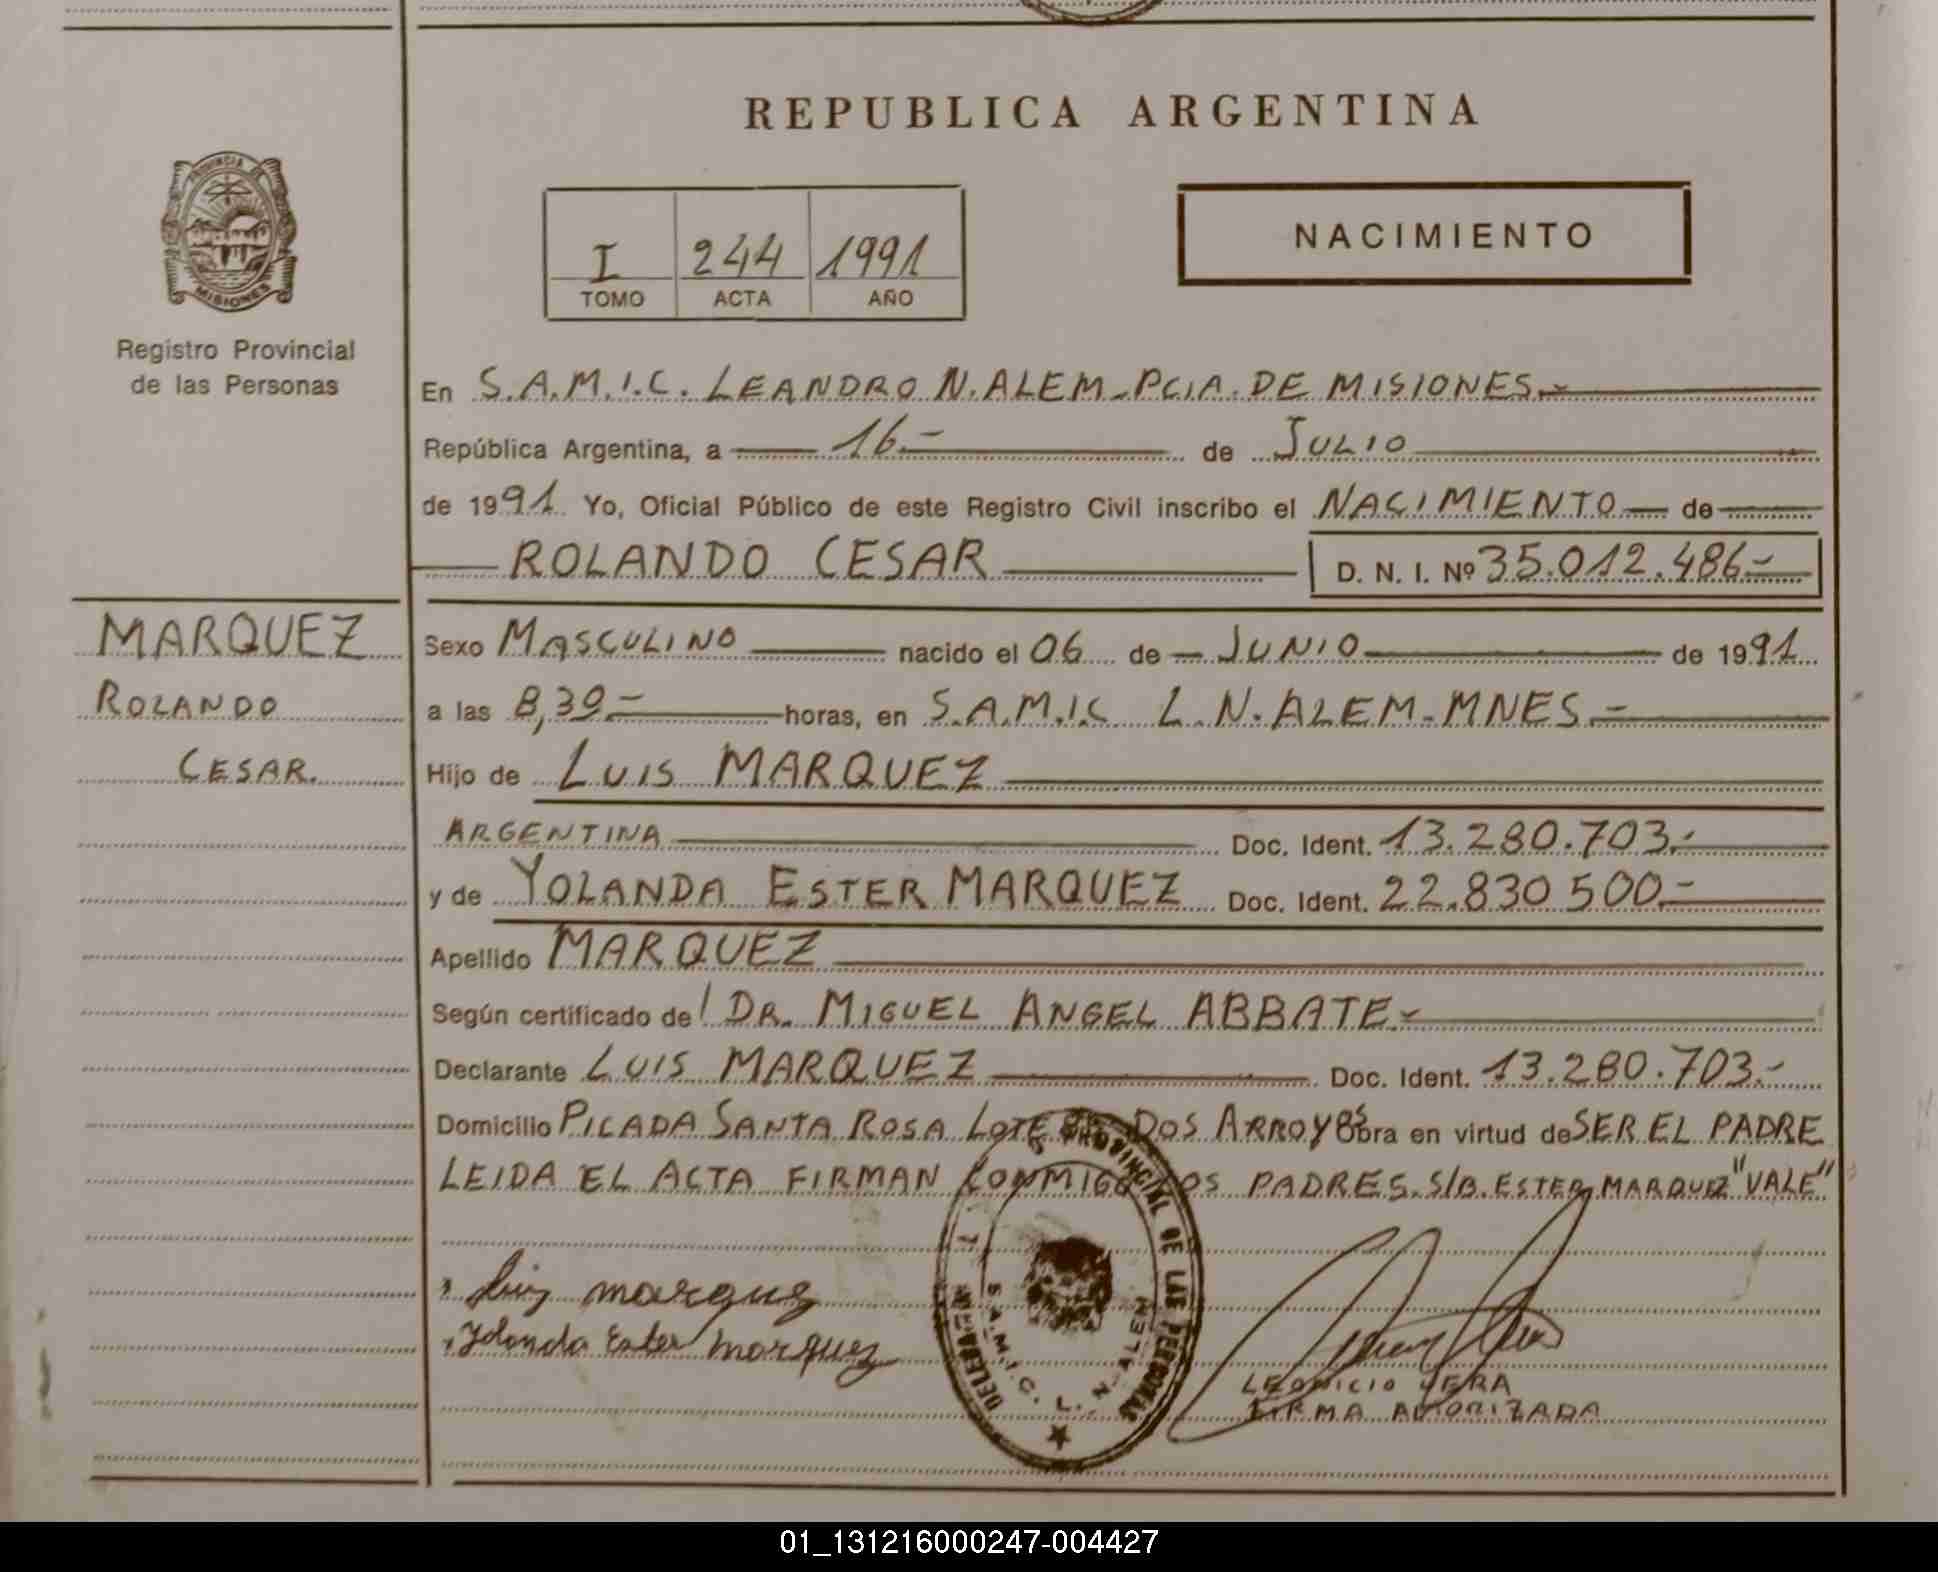 REPUBLICA ARGENTINA
PROVINCIA DE
MISIONES
Registro Provincial
de las Personas
I 244 1991
TOMO ACTA AÑO
NACIMIENTO
En S.A.M.I.C. LEANDRO N. ALEM-PCIA. DE MISIONES.-
República Argentina, a 16.- de JULIO
de 1991. Yo, Oficial Público de este Registro Civil inscribo el NACIMIENTO de
ROLANDO CESAR D. N. I. Nº 35.012.486.-
MARQUEZ
ROLANDO
CESAR.
Sexo MASCULINO nacido el 06 de JUNIO de 1991
a las 8,30.- horas, en S.A.M.I.C L. N. ALEM-MNES.-
Hijo de LUIS MARQUEZ
ARGENTINA Doc. Ident. 13.280.703.-
y de YOLANDA ESTER MARQUEZ Doc. Ident. 22.830 500.-
Apellido MARQUEZ
Según certificado del DR. MIGUEL ANGEL ABBATE.-
Declarante LUIS MARQUEZ Doc. Ident. 13.280.703.-
Domicilio PICADA SANTA ROSA LOTE DOS ARROYOS Obra en virtud de SER EL PADRE
LEIDA EL ACTA FIRMAN CONMIGO LOS PADRES. S/B. ESTER MARQUEZ "VALE"
Luis marquez
Yolanda Ester marquez
PROVINCIAL DE LAS PERSONAS
S.A.M.I.C. L. N. ALEM
LEONICIO VERA
FIRMA AUTORIZADA
01_131216000247-004427